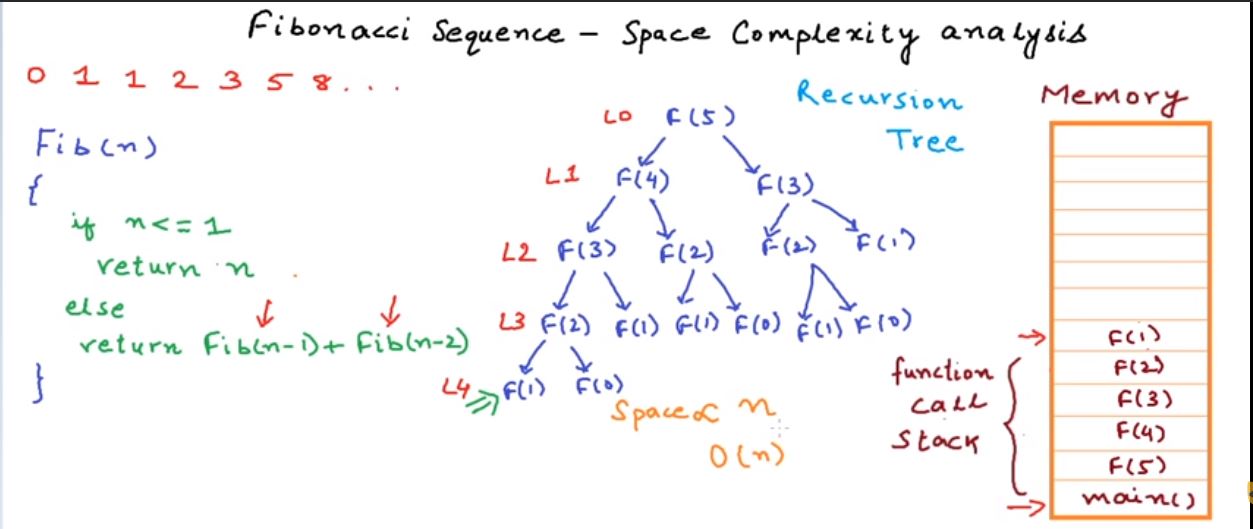 Fibonacci Sequence – Space Complexity analysis
0 1 1 2 3 5 8 . . .
Fib(n)
{
if n<=1
return n
else
return Fib(n-1)+ Fib(n-2)
}
Recursion
Tree
L0 F(5)
L1 F(4) F(3)
L2 F(3) F(2) F(2) F(1)
L3 F(2) F(1) F(1) F(0) F(1) F(0)
L4 F(1) F(0)
Space ∝ n
O(n)
Memory
function
call
stack
F(1)
F(2)
F(3)
F(4)
F(5)
main()